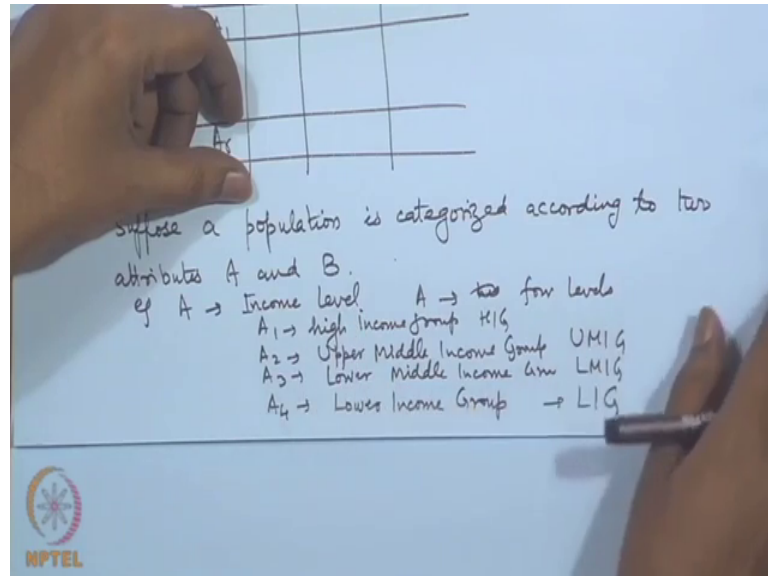 A1
Ar
suppose a population is categorized according to two
attributes A and B.
eg A → Income Level. A → four levels
A1 → high Income group HIG
A2 → Upper Middle Income Group UMIG
A3 → Lower Middle Income LMIG
A4 → Lower Income Group → LIG
NPTEL